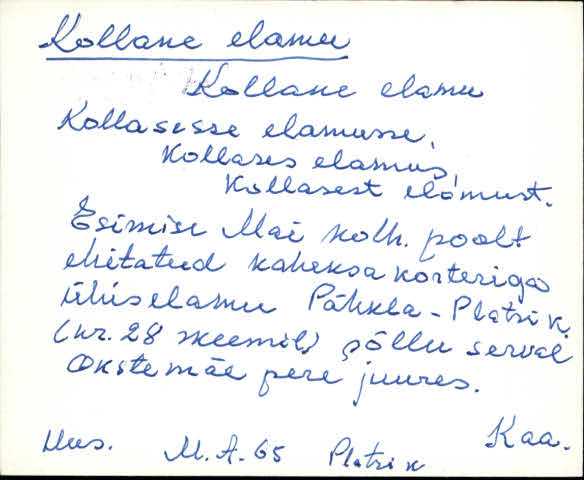 Kollane elamu
Kollane elamu
Kollasesse elamusse,
Kollases elamus,
Kollasest elamust.
Esimise Mai kolh. poolt
ehitatud kaheksa korteriga
ühiselamu Pähkla-Platsi k.
(nr. 28 skeemil) põllu serval
Okstemäe pere juures.
Uus. M.A. 65 Platsi k Kaa.